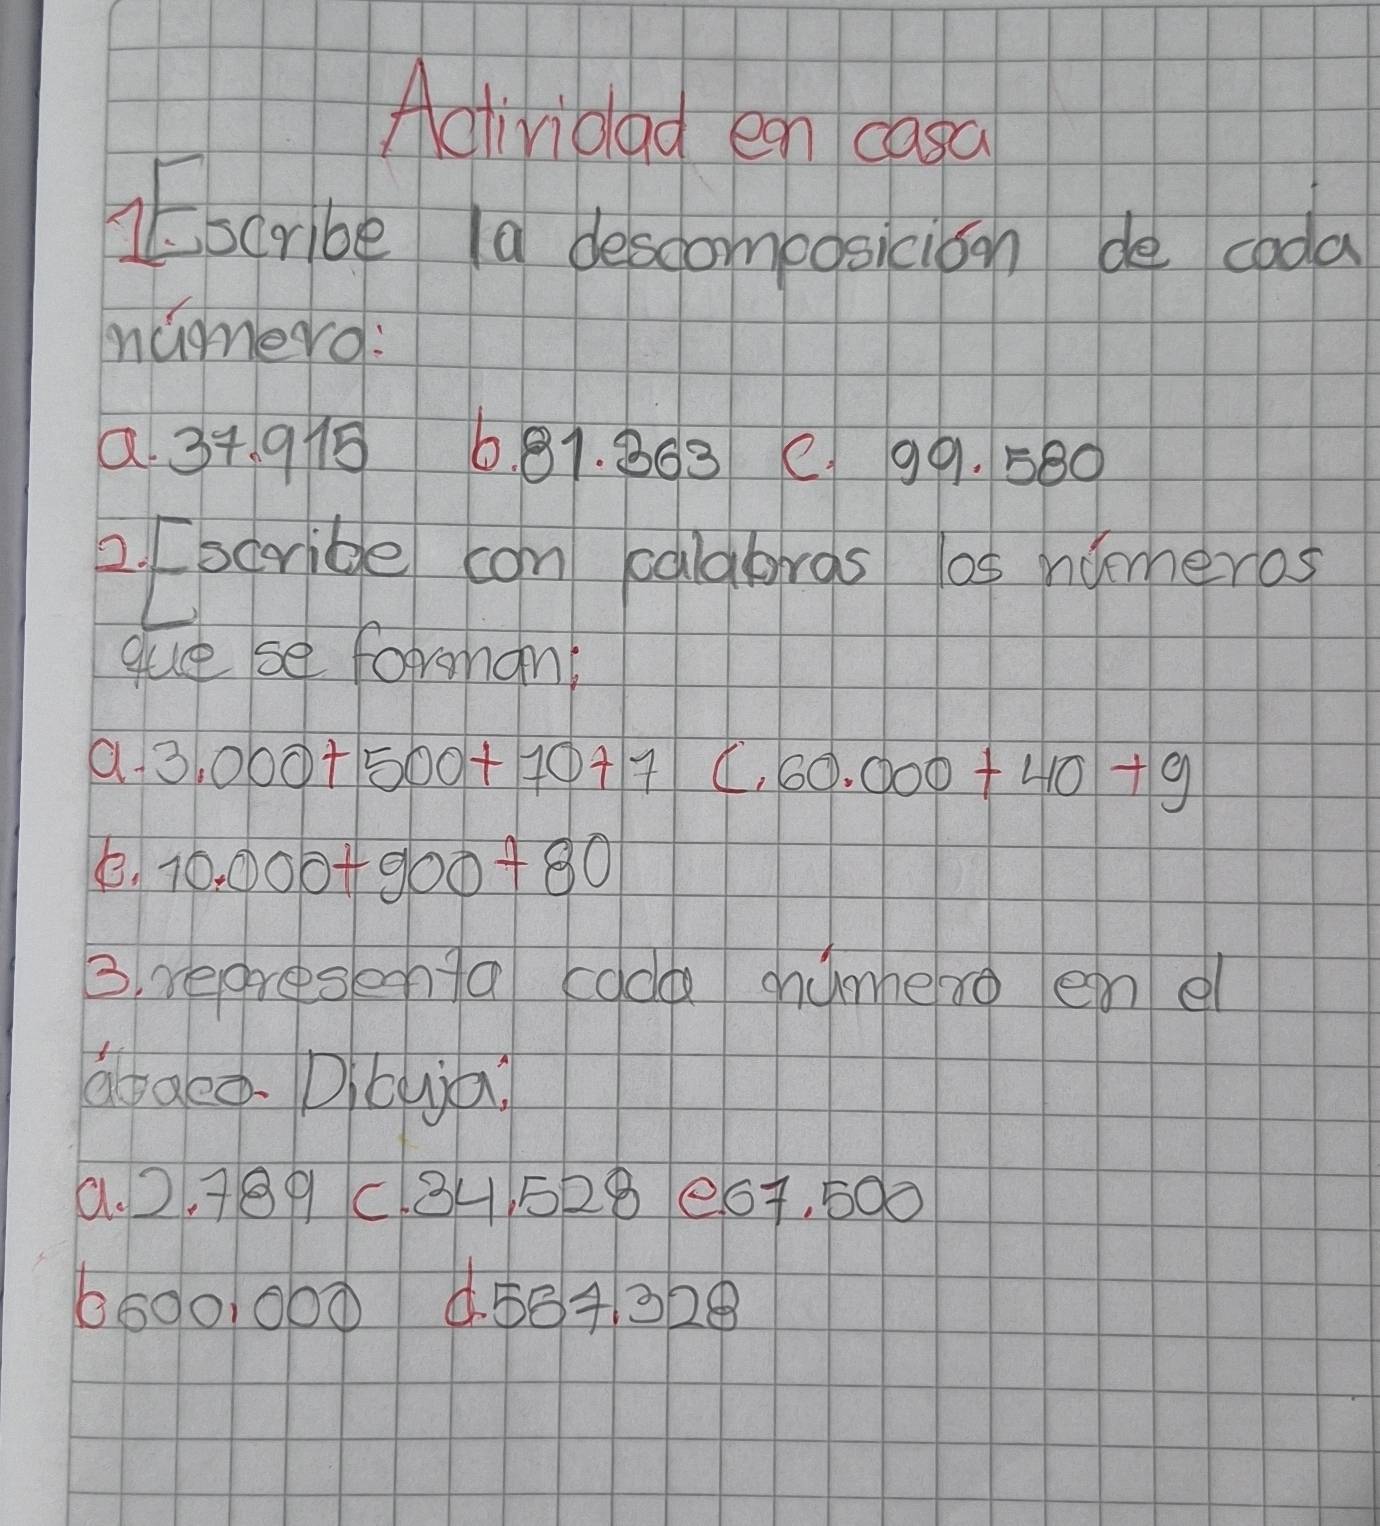 Actividad en casa
1.Escribe la descomposición de cada
número:
a. 37.915 b. 81.363 c. 99.580
2. Escribe con palabras los números
que se forman:
a. 3.000+500+70+7 c. 60.000+40+9
b. 10.000+900+80
3. representa cada número en el
ábaco. Dibuja:
a. 2.789 c. 34.528 e 67.500
b 600.000 d. 567.328